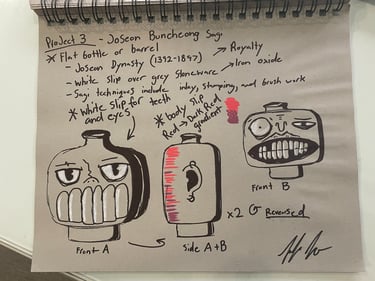 Project 3 - JoSeon Buncheong Sagi
* Flat bottle or barrel
- JoSeon Dynasty (1392-1897) → Royalty
- White slip over grey Stoneware → Iron oxide
- Sagi techniques include inlay, stamping, and brush work
* white slip for teeth
and eyes
* body slip
Red → Dark Red
gradient
Front A
Side A+B
x2 Reversed
Front B